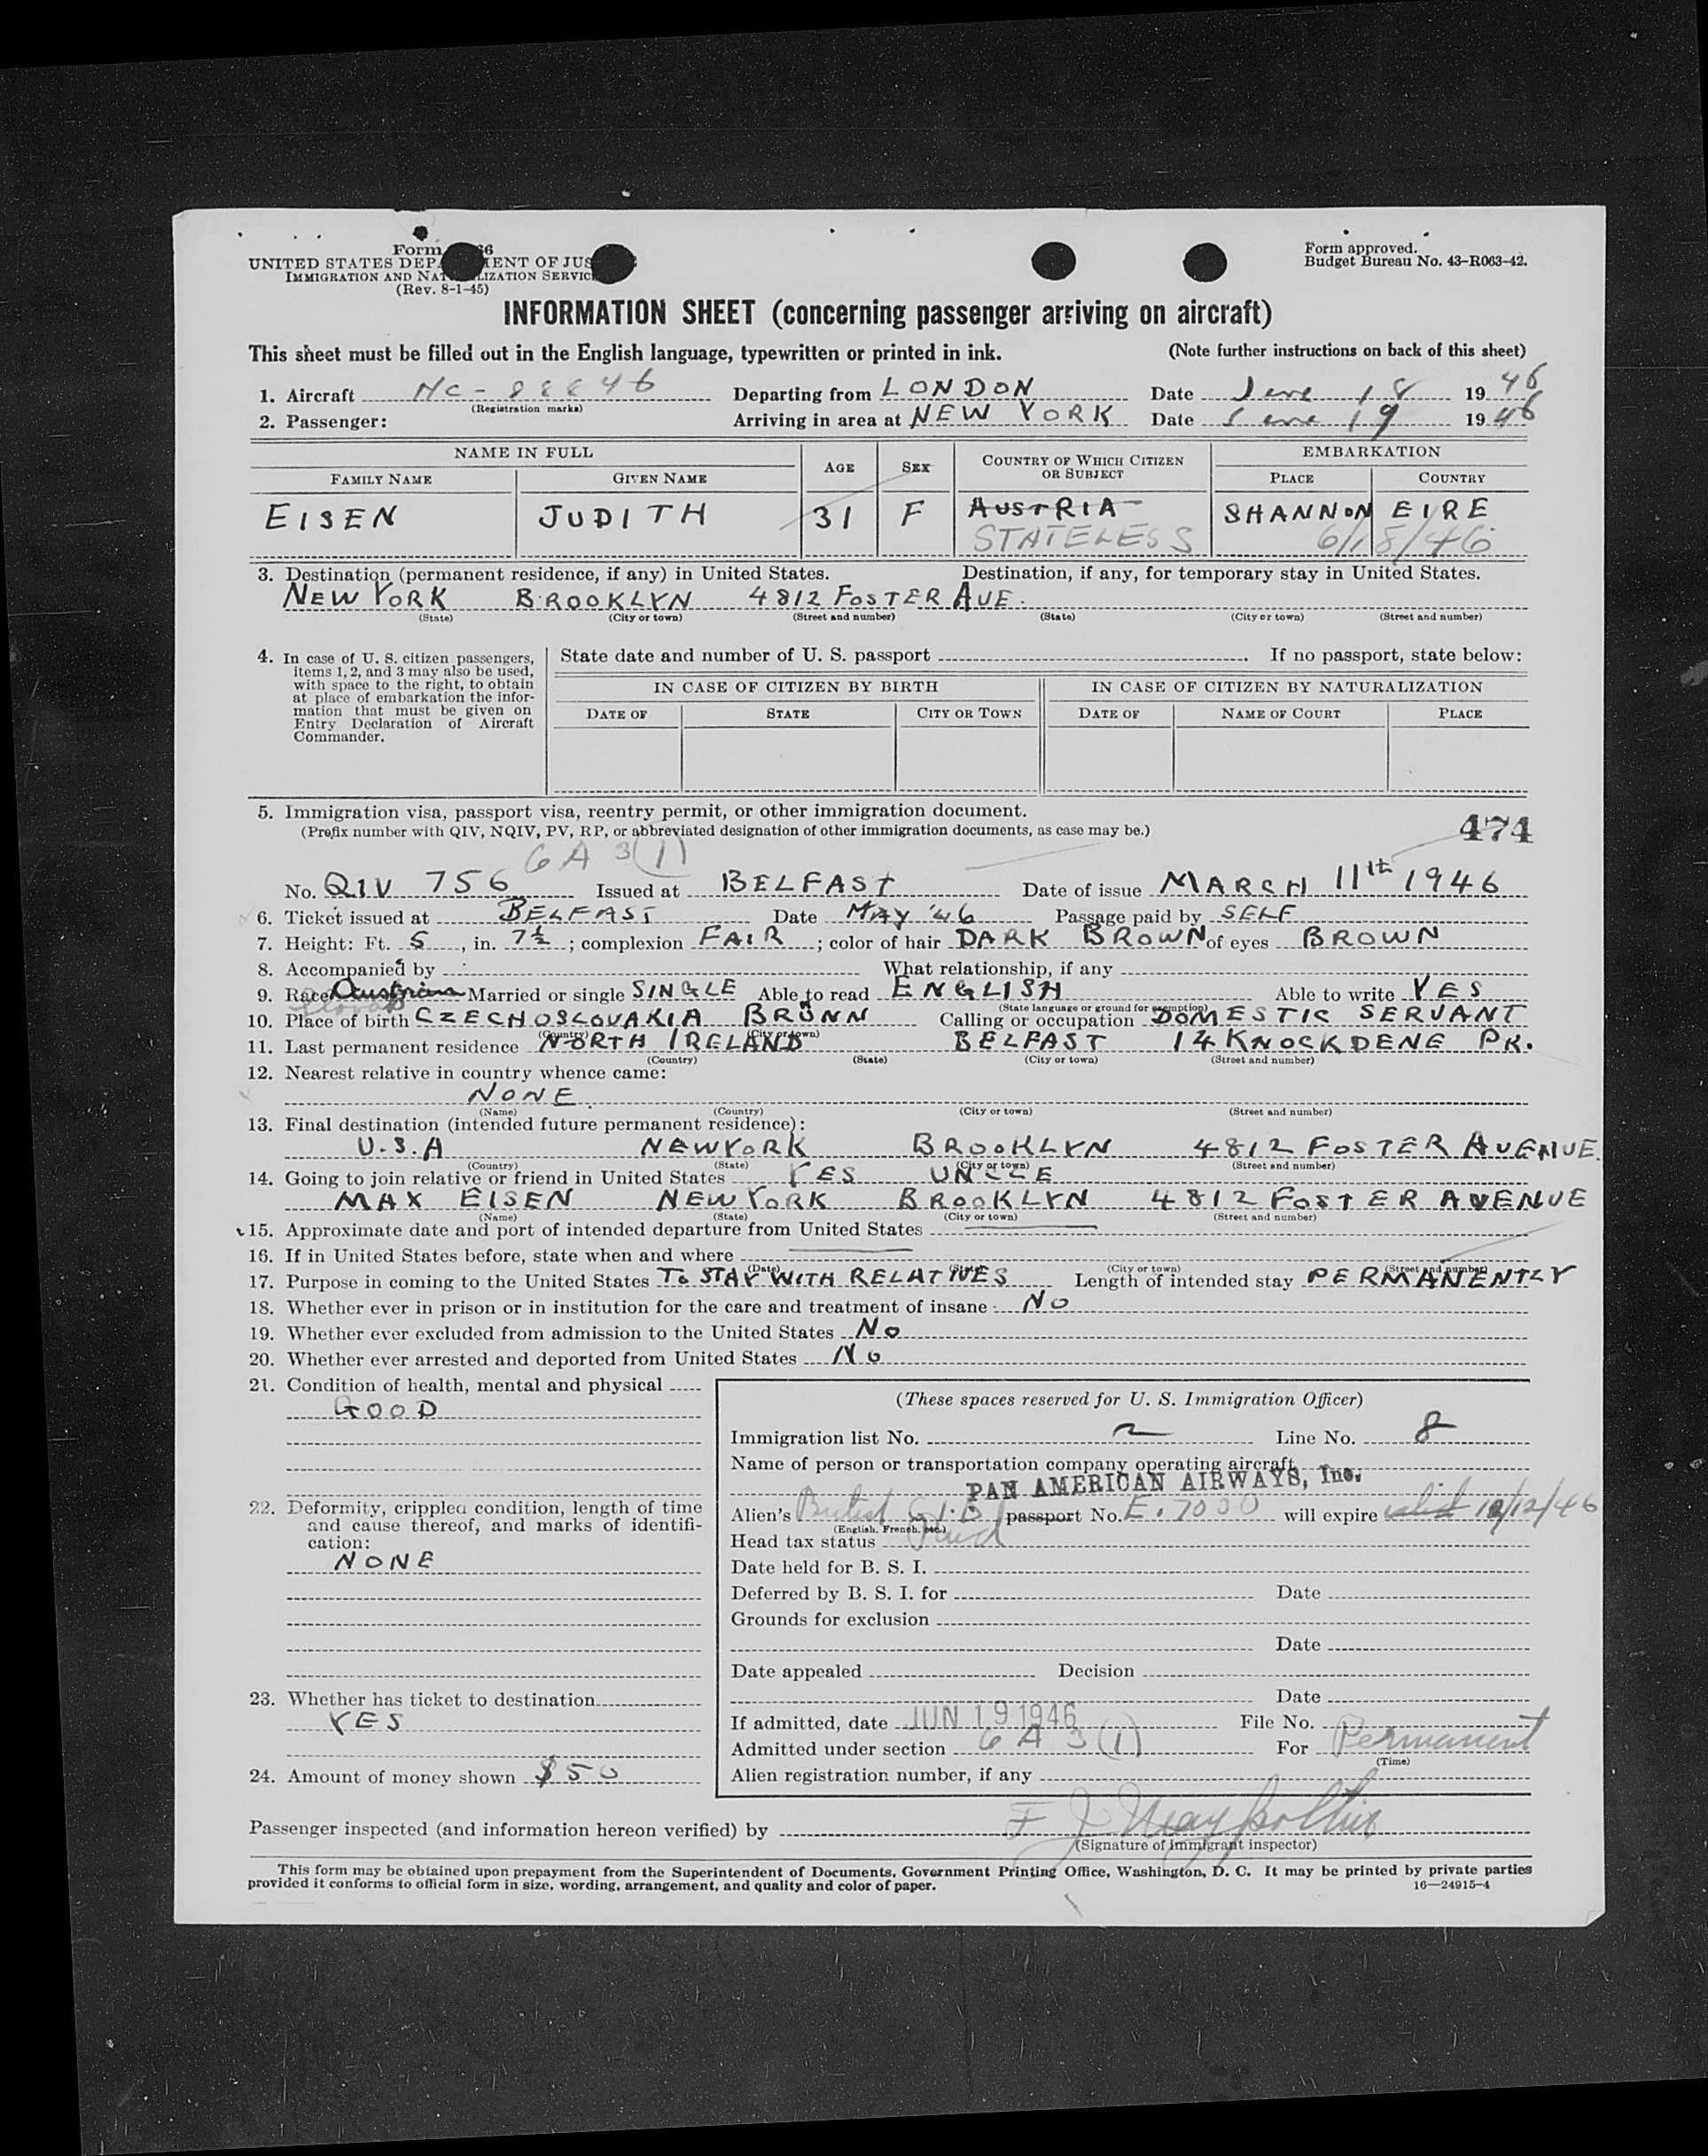 Form
UNITED STATES DEPARTMENT OF JUSTICE
IMMIGRATION AND NATURALIZATION SERVICE
(Rev. 8-1-45)
Form approved.
Budget Bureau No. 43-R063-42.
INFORMATION SHEET (concerning passenger arriving on aircraft)
This sheet must be filled out in the English language, typewritten or printed in ink. (Note further instructions on back of this sheet)
1. Aircraft NC-88846 Departing from LONDON Date June 18 1946
(Registration marks)
2. Passenger: Arriving in area at NEW YORK Date June 19 1946
NAME IN FULL AGE SEX COUNTRY OF WHICH CITIZEN OR SUBJECT EMBARKATION
FAMILY NAME GIVEN NAME PLACE COUNTRY
EISEN JUDITH 31 F AUSTRIA SHANNON EIRE
STATELESS 6/18/46
3. Destination (permanent residence, if any) in United States. Destination, if any, for temporary stay in United States.
NEW YORK BROOKLYN 4812 FOSTER AVE.
(State) (City or town) (Street and number) (State) (City or town) (Street and number)
4. In case of U. S. citizen passengers, items 1, 2, and 3 may also be used, with space to the right, to obtain at place of embarkation the information that must be given on Entry Declaration of Aircraft Commander.
State date and number of U. S. passport . If no passport, state below:
IN CASE OF CITIZEN BY BIRTH IN CASE OF CITIZEN BY NATURALIZATION
DATE OF STATE CITY OR TOWN DATE OF NAME OF COURT PLACE
5. Immigration visa, passport visa, reentry permit, or other immigration document.
(Prefix number with QIV, NQIV, PV, RP, or abbreviated designation of other immigration documents, as case may be.) 474
6A3(1)
No. QIV 756 Issued at BELFAST Date of issue MARCH 11th 1946
6. Ticket issued at BELFAST Date MAY '46 Passage paid by SELF
7. Height: Ft. 5, in. 7½; complexion FAIR; color of hair DARK BROWN of eyes BROWN
8. Accompanied by What relationship, if any
9. Race Austrian Married or single SINGLE Able to read ENGLISH Able to write YES
(State language or ground for exemption)
10. Place of birth CZECHOSLOVAKIA BRÜNN Calling or occupation DOMESTIC SERVANT
(Country) (City or town)
11. Last permanent residence NORTH IRELAND BELFAST 14 KNOCKDENE PK.
(Country) (State) (City or town) (Street and number)
12. Nearest relative in country whence came:
NONE
(Name) (Country) (City or town) (Street and number)
13. Final destination (intended future permanent residence):
U.S.A NEWYORK BROOKLYN 4812 FOSTER AVENUE.
(Country) (State) (City or town) (Street and number)
14. Going to join relative or friend in United States YES UNCLE
MAX EISEN NEW YORK BROOKLYN 4812 FOSTER AVENUE
(Name) (State) (City or town) (Street and number)
15. Approximate date and port of intended departure from United States
16. If in United States before, state when and where
(Date) (State) (City or town) (Street and number)
17. Purpose in coming to the United States To STAY WITH RELATIVES Length of intended stay PERMANENTLY
18. Whether ever in prison or in institution for the care and treatment of insane No
19. Whether ever excluded from admission to the United States No
20. Whether ever arrested and deported from United States No
21. Condition of health, mental and physical
GOOD
22. Deformity, crippled condition, length of time and cause thereof, and marks of identification:
NONE
23. Whether has ticket to destination
YES
24. Amount of money shown $50
(These spaces reserved for U. S. Immigration Officer)
Immigration list No. 2 Line No. 8
Name of person or transportation company operating aircraft
PAN AMERICAN AIRWAYS, Inc.
Alien's British passport No. E. 7030 will expire valid 12/12/46
(English, French, etc.)
Head tax status Paid
Date held for B. S. I.
Deferred by B. S. I. for Date
Grounds for exclusion
Date
Date appealed Decision
Date
If admitted, date JUN 19 1946 File No.
Admitted under section 6A3(1) For Permanent
(Time)
Alien registration number, if any
Passenger inspected (and information hereon verified) by
(Signature of immigrant inspector)
This form may be obtained upon prepayment from the Superintendent of Documents, Government Printing Office, Washington, D. C. It may be printed by private parties
provided it conforms to official form in size, wording, arrangement, and quality and color of paper. 16—24915-4